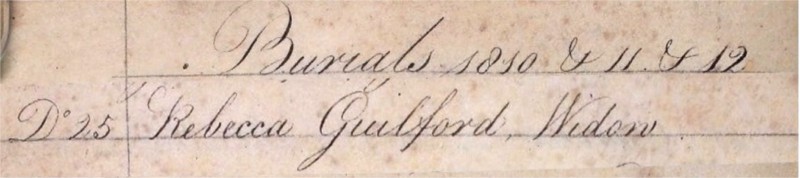 Burials 1810 & 11 & 12
Do 25 Rebecca Guilford, Widow